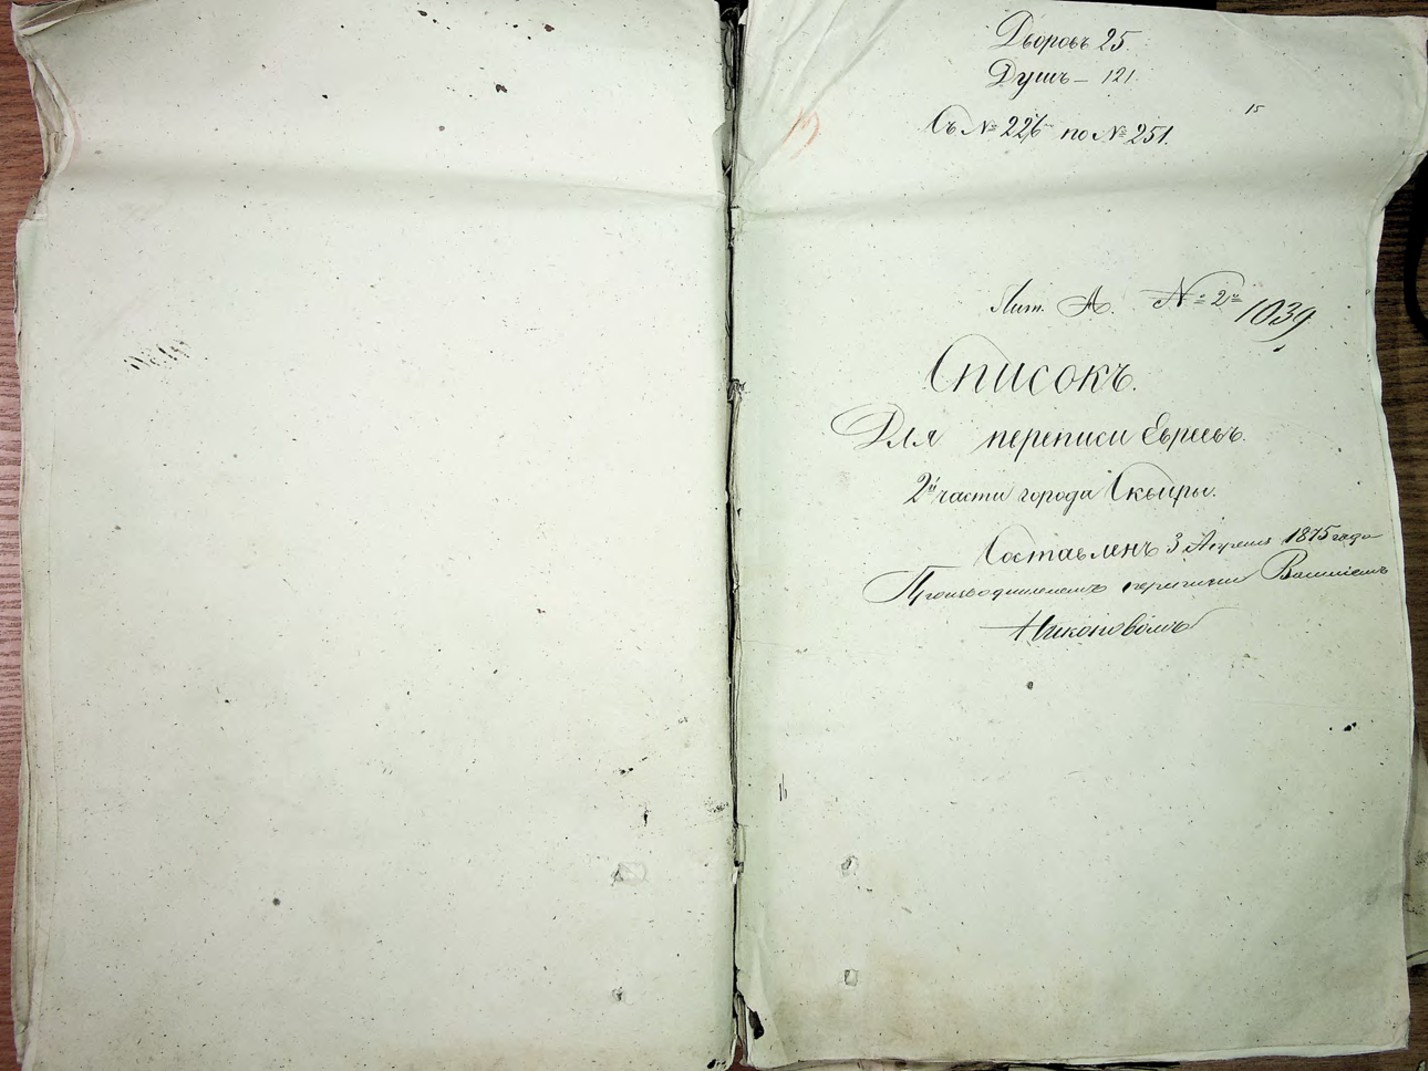 Дворовъ 25.
Душъ — 121.
15
Съ № 226 по № 251.
Лит. А. № 2й
1039
Списокъ.
Для переписи Евреевъ.
2й части города Сквыры.
Составленъ 3 Апреля 1875 года
Производителемъ переписи
Никоновымъ